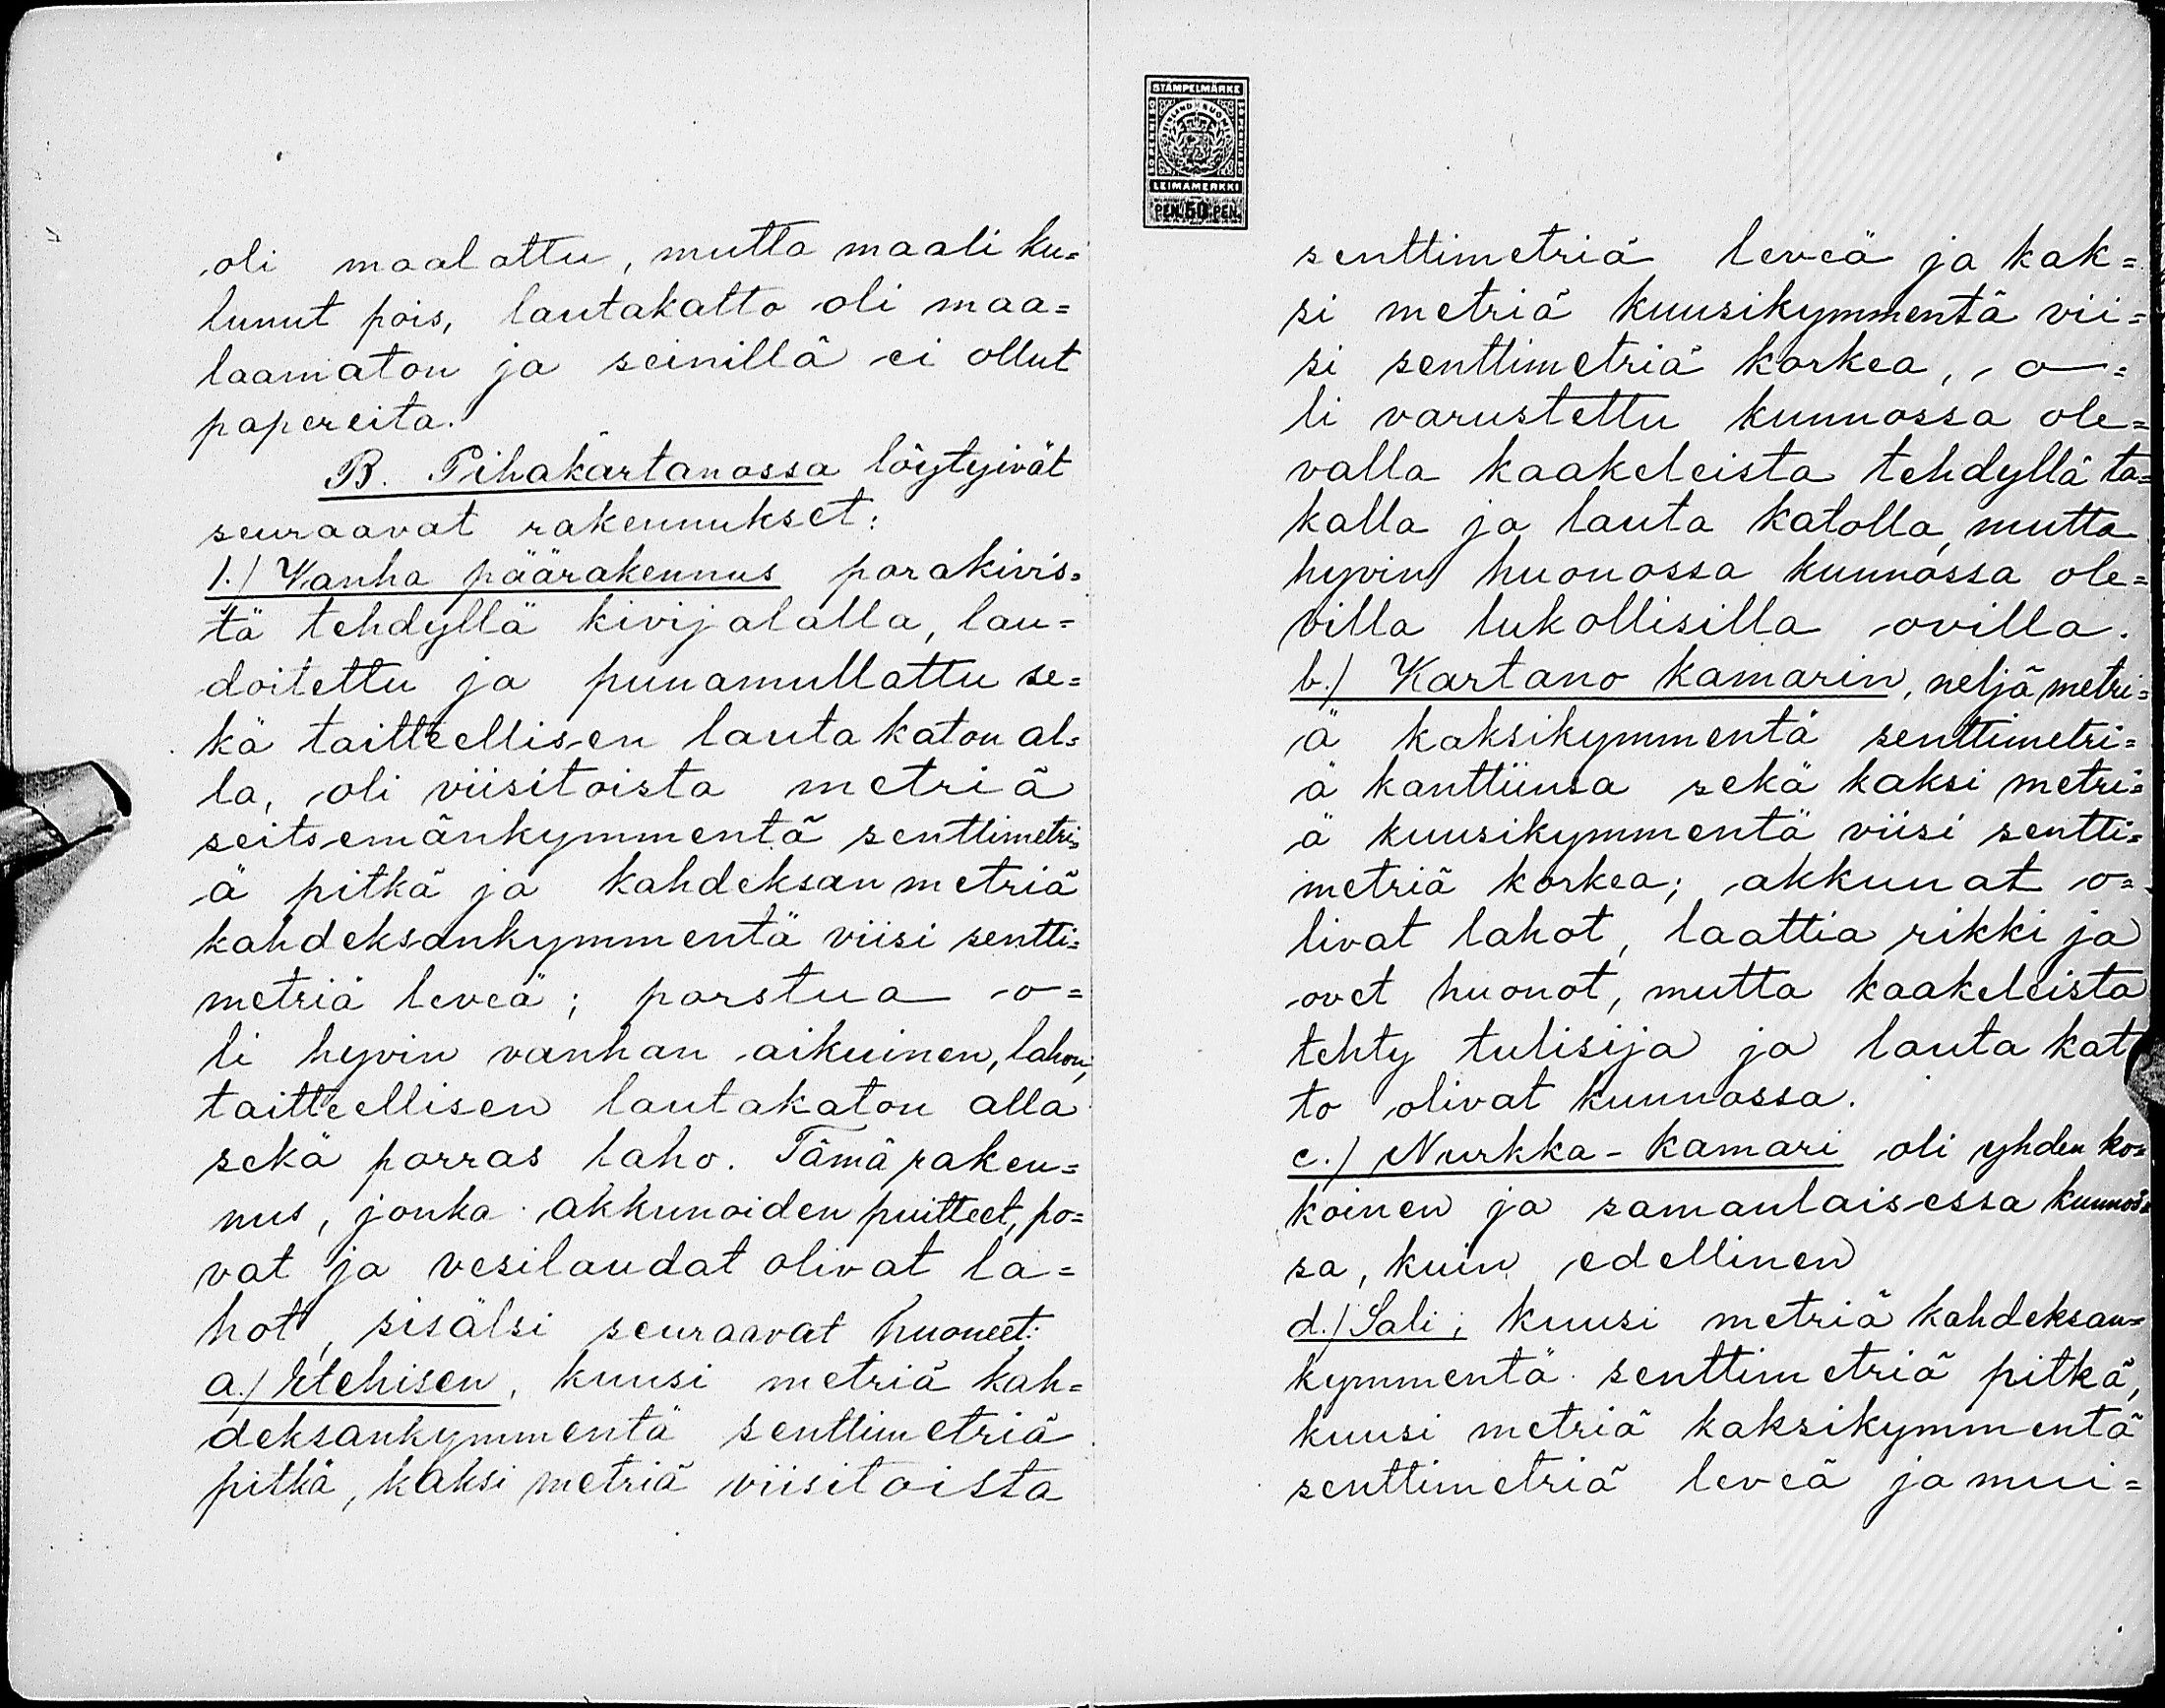 oli maalattu, mutta maali ku=
lunut pois, lautakatto oli maa=
laamaton ja seinillä ei ollut
papereita.
B. Pihakartanossa löytyivät
seuraavat rakennukset:
1./ Wanha päärakennus parakivis=
tä tehdyllä kivijalalla, lau=
doitettu ja punamullattu se=
kä taitteellisen lauta katon al=
la, oli viisitoista metriä
seitsemänkymmentä senttimetri=
ä pitkä ja kahdeksan metriä
kahdeksankymmentä viisi sentti=
metriä leveä; parstua o=
li hyvin vanhan aikuinen, lahon,
taitteellisen lautakaton alla
sekä porras laho. Tämä raken=
nus, jonka akkunoiden puitteet, po=
vat ja vesilaudat olivat la=
hot, sisälsi seuraavat huoneet:
a./ Etehisen, kuusi metriä kah=
deksankymmentä senttimetriä
pitkä, kaksi metriä viisitoista
STÄMPELMÄRKE
FINLAND SUOMI
50 PENNI 50
50 PENNIÄ 50
LEIMAMERKKI
PEN. 50 PEN.
senttimetriä leveä ja kak=
si metriä kuusikymmentä vii=
si senttimetriä korkea, o=
li varustettu kunnossa ole=
valla kaakeleista tehdyllä ta=
kalla ja lauta katolla, mutta
hyvin huonossa kunnossa ole=
villa lukollisilla ovilla.
b./ Kartano kamarin, neljä metri=
ä kaksikymmentä senttimetri=
ä kanttiinsa sekä kaksi metri=
ä kuusikymmentä viisi sentti=
metriä korkea; akkunat o=
livat lahot, laattia rikki ja
ovet huonot, mutta kaakeleista
tehty tulisija ja lauta kat
to olivat kunnossa.
c./ Nurkka-kamari oli yhden ko=
koinen ja samanlaisessa kunnos=
sa, kuin edellinen
d./ Sali; kuusi metriä kahdeksan=
kymmentä senttimetriä pitkä,
kuusi metriä kaksikymmentä
senttimetriä leveä ja mui=